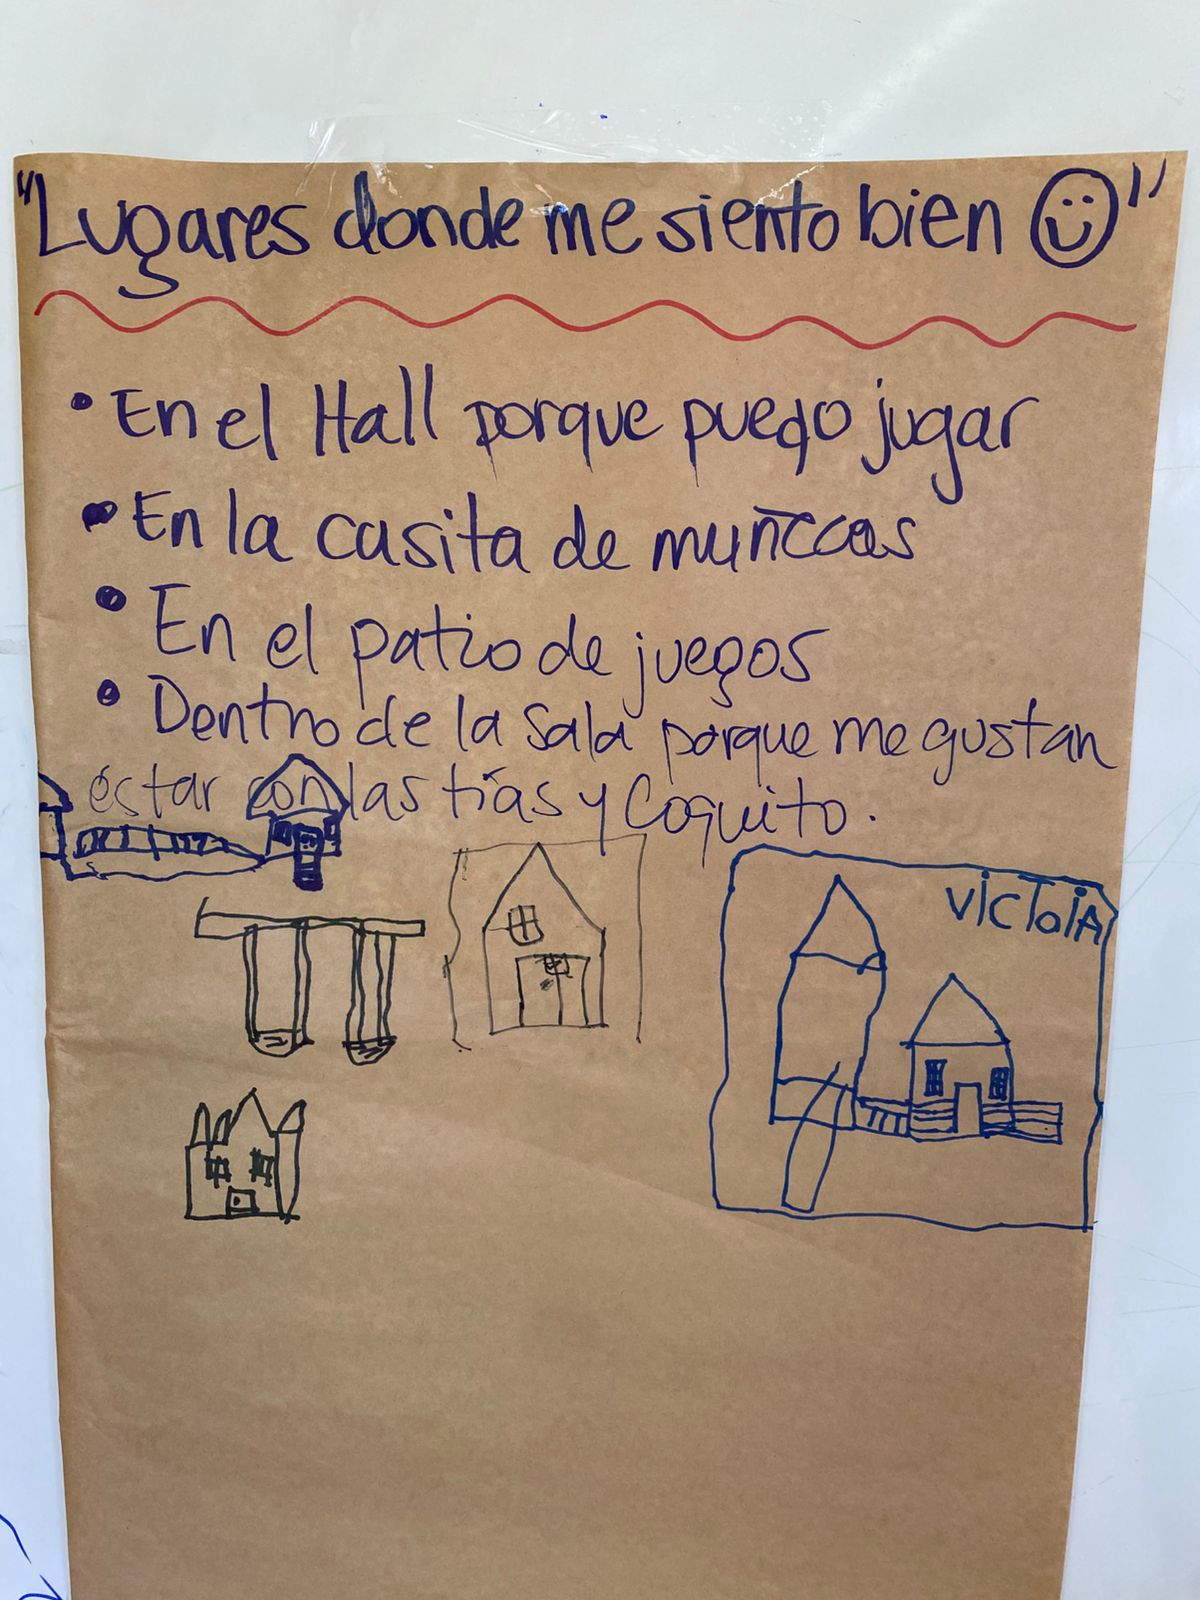 "Lugares donde me siento bien"
• En el Hall porque puedo jugar
• En la casita de muñecas
• En el patio de juegos
• Dentro de la Sala porque me gustan
estar con las tías y Coquito.
VICToiA